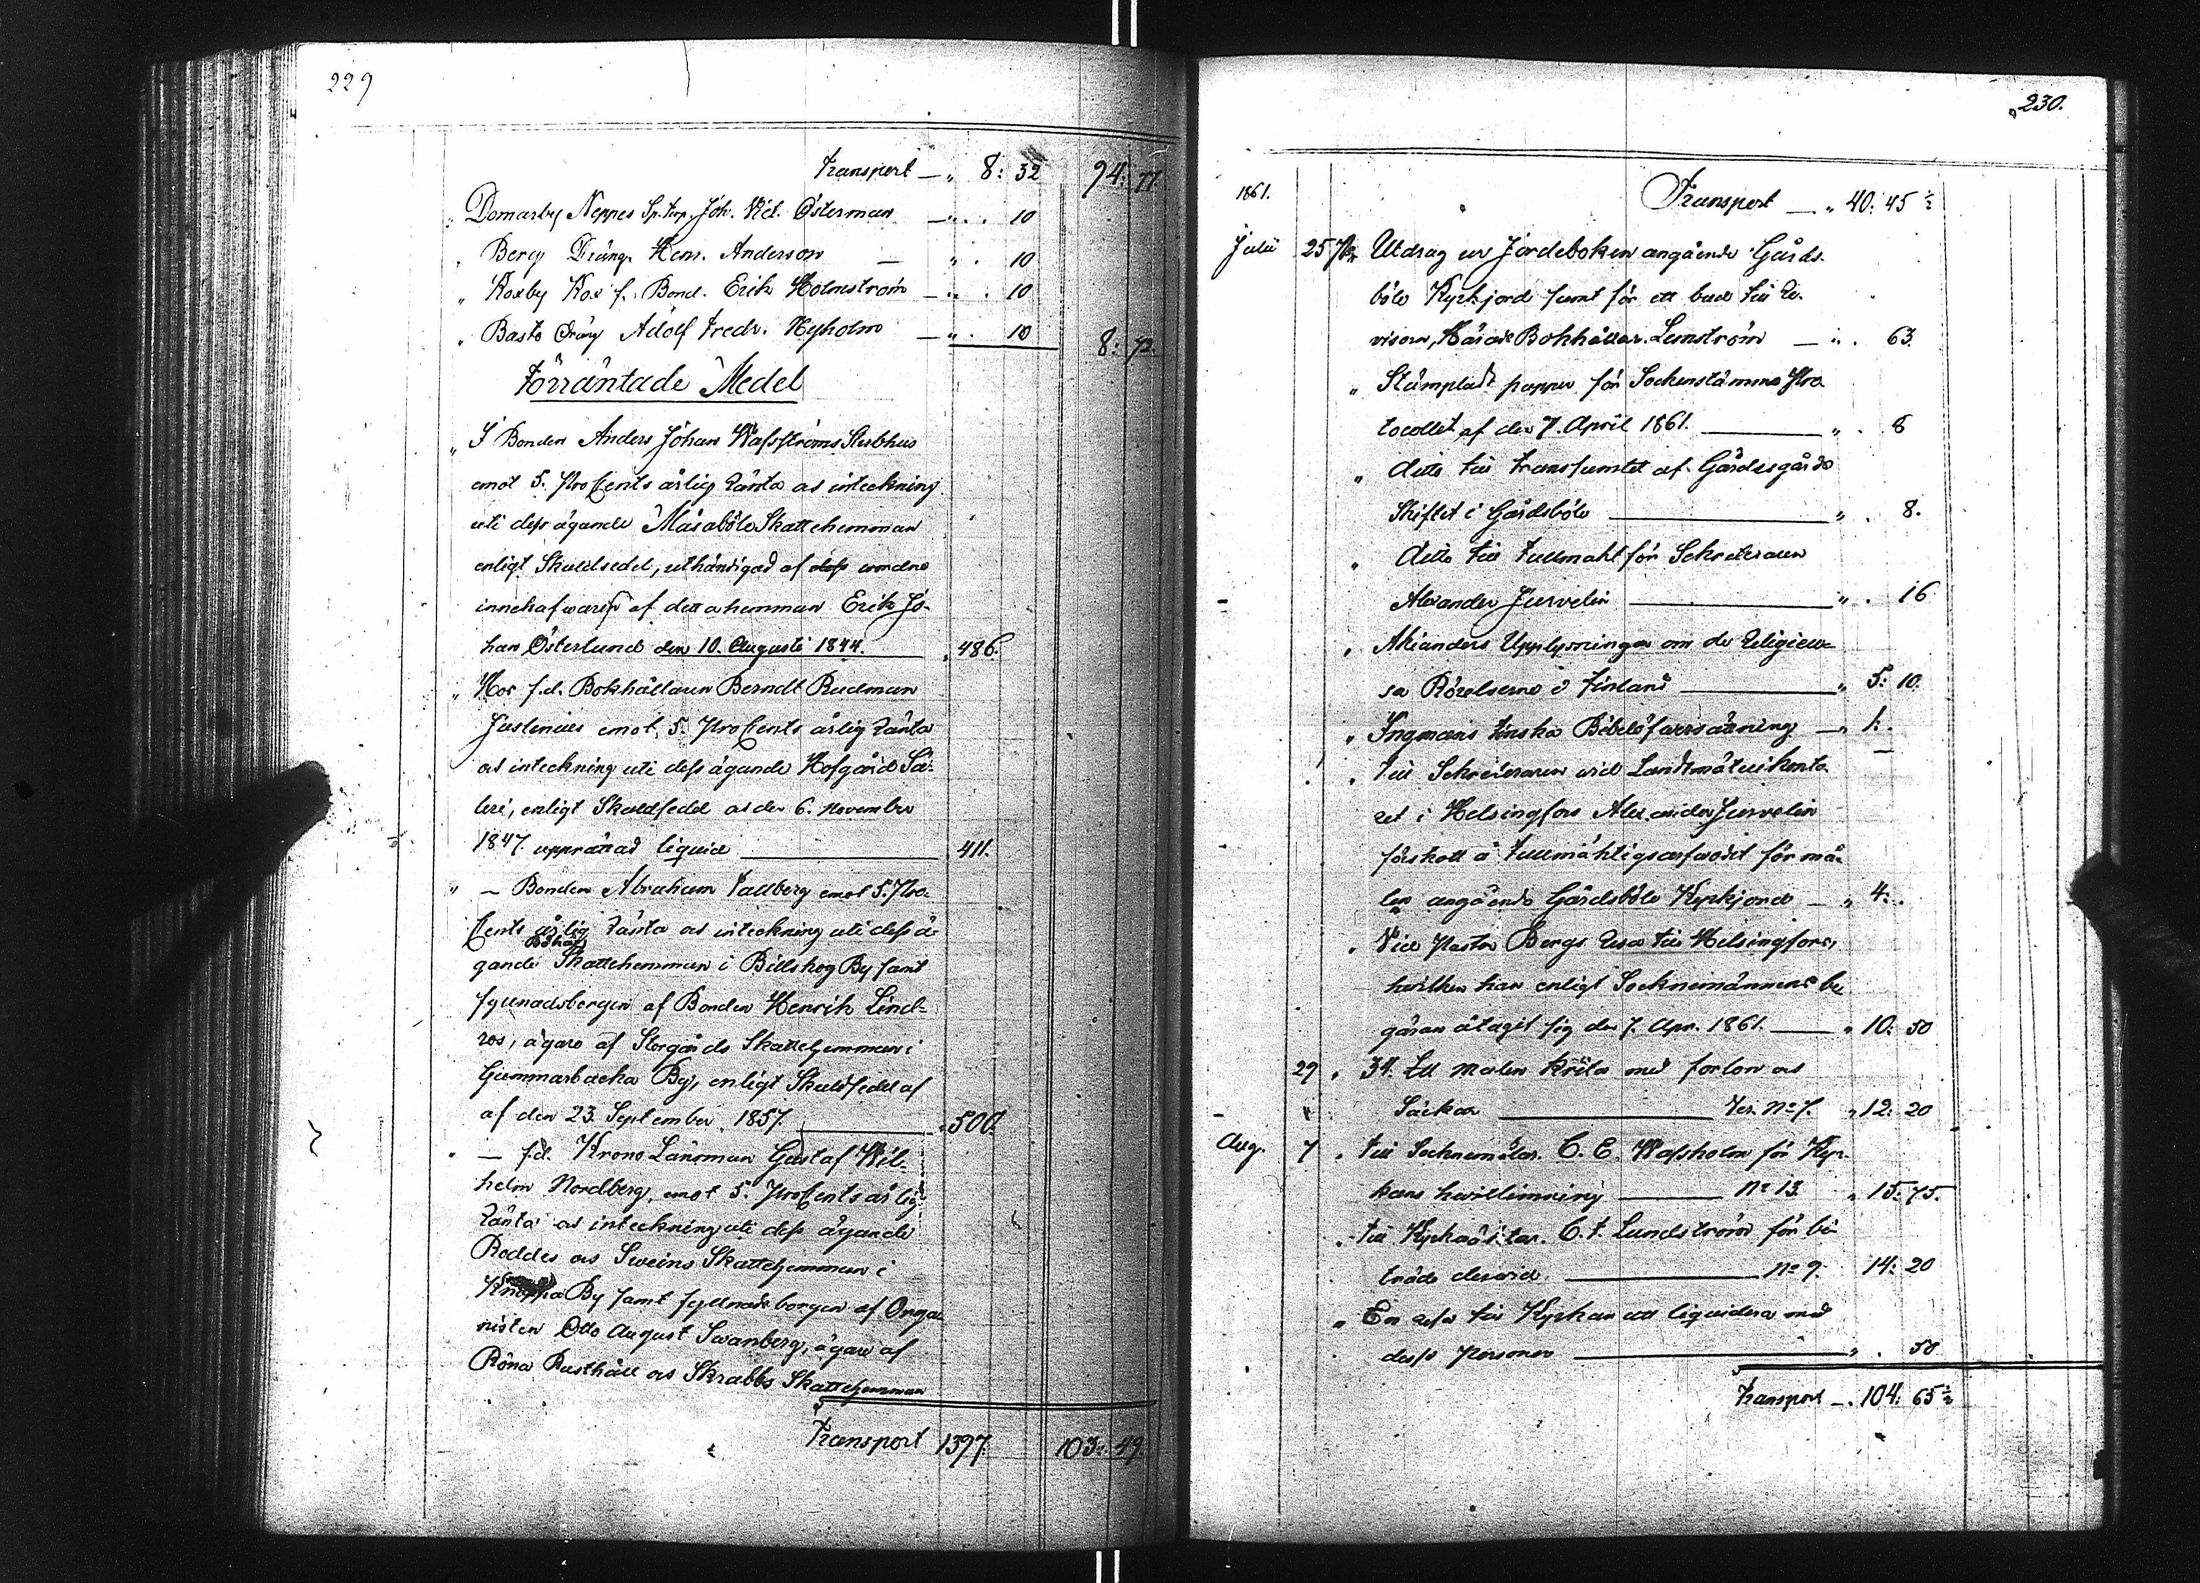 229
Transport — „ 8: 32 94: 77
„ Domarby Neppes Sp.torp. Joh. Vict. Österman — „ . 10
„ Berg Dräng. Henr. Anderson — „ . 10
„ Koxby Kox f. Bond. Erik Holmström — „ . 10
„ Bastö Dräng Adolf Fredr. Nyholm — „ . 10 8: 72.
Förräntade Medel
„ I Bonden Anders Johan Wafsströms Sterbhus
emot 5. ProCents årlig Ränta os inteckning
uti defs ägande Måsaböle Skattehemman
enligt Skuldsedel, uthändigad af defs wordne
innehafwaren af detta hemman Erik Jo-
han Österlund den 10. Augusti 1844. „ 486.
„ Hos f.d. Bokhållaren Berndt Rudman
Juslenius emot 5. ProCents årlig Ränta
os inteckning uti defs ägande Hofgård Sä-
teri, enligt Skuldsedel os den 6. November
1847. upprättad liquid „ 411.
„ — Bonden Abraham Fallberg emot 5. Pro-
Cents årlig Ränta os inteckning uti defs ä-
gande Skattehemman i Billskog By samt
fyllnadsborgen af Bonden Henrik Lind-
ros, ägare af Storgårds Skattehemman i
Gummarbacka By, enligt Skuldsedel af
af den 23 September 1857. „ 500.
„ — f.d. Krono Länsman Gustaf Wil-
helm Nordberg, emot 5. ProCents årlig
Ränta os inteckning uti defs ägande
Roddes os Sweins Skattehemman i
By samt fyllnadsborgen af Orga-
nisten Otto August Swanberg, ägare af
Röna Rusthåll os Skrabbs Skattehemman
Transport 1397. 103: 49.
230.
1861. Transport — „ 40: 45 ½
Julii 25 Utdrag ur Jordeboken angående Gårds-
böle Kyrkjord samt för ett bud till Re-
visorn, Härads Bokhållar. Lemström — „ . 63.
„ Stämpladt papper för Sockenstämmo Pro
tocollet af den 7. April 1861. „ . 8
„ ditto till transsumtet af Gärdesgårds
Skiftet i Gårdsböle „ . 8.
„ ditto till Fullmakt för Sekreteraren
Alexander Jurvelin „ . 16
„ Akianders Upplysningar om de Religieu-
sa Rörelserne i Finland „ 5: 10.
„ Ingmans Finska Bibelöfversättning — „ 1: .
„ Till Sekreteraren wid Landtmäterikonto
ret i Helsingfors Alexander Jurvelin
förskott å Fullmäktigsarfwodet för må-
len angående Gårdsböle Kyrkjord — „ 4: .
„ Vice Pastor Bergs Resa till Helsingfors,
hwilken han enligt Socknemännens be
gäran åtagit sig den 7. Apr. 1861. „ 10: 50
29 „ 34. Ltt Malen Krita med forlon os
Säckar Ver. No 7. „ 12: 20
Aug. 7 „ Till Sockenmålar. C. E. Wafsholm för Kyr-
kans hwitlimning No 13. „ 15: 75.
„ Till Kyrkowäktar. C. F. Lundström för bi
träde derwid. No 9. 14: 20
„ En resa till Kyrkan att liquidera med
dessa Personer „ . 50
Transport — „ 104: 65 ½